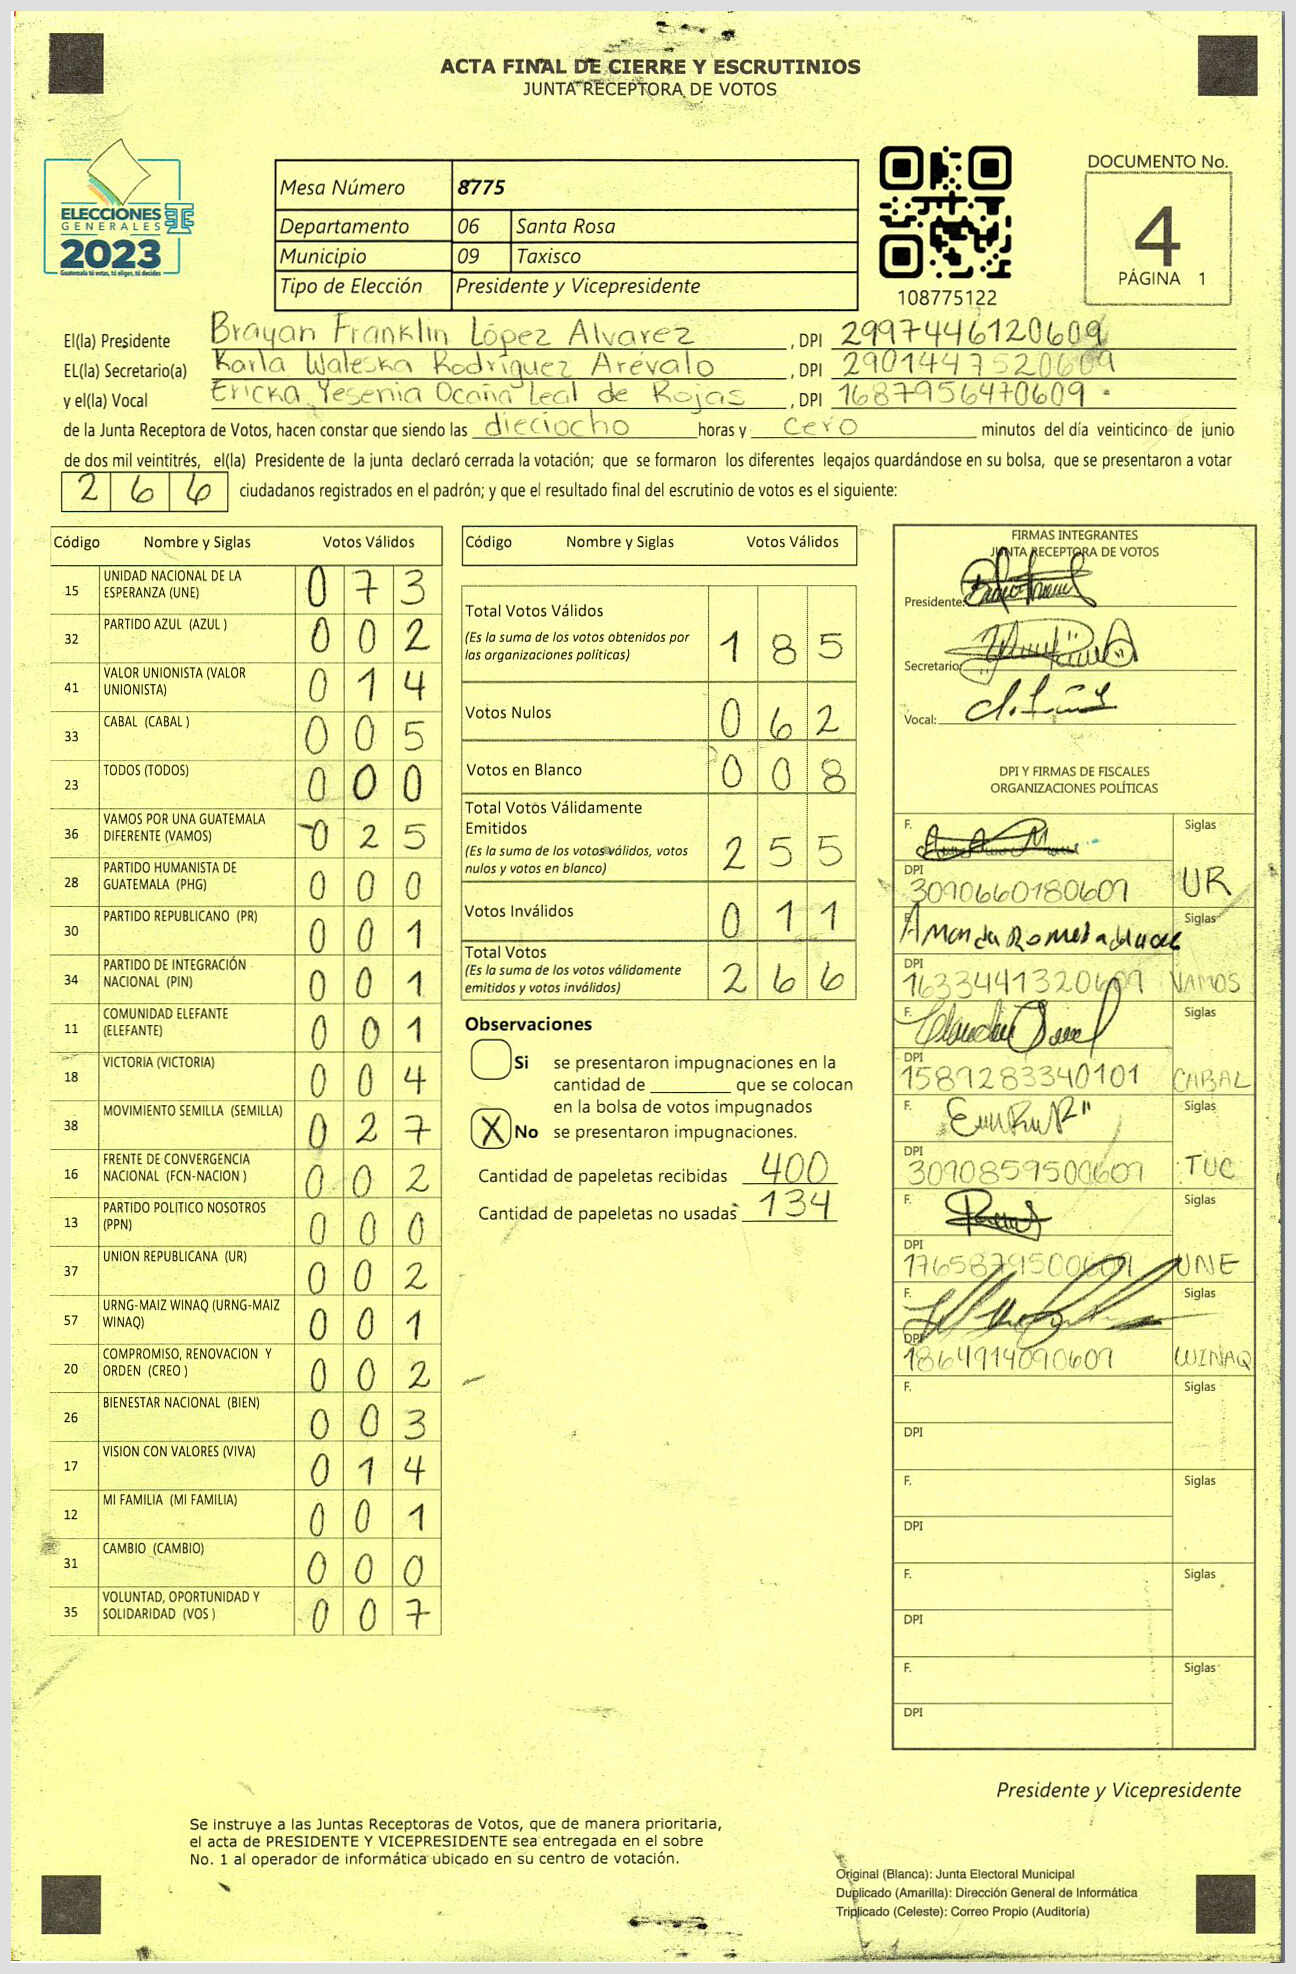 ACTA FINAL DE CIERRE Y ESCRUTINIOS
JUNTA RECEPTORA DE VOTOS
ELECCIONES
GENERALES
2023
Guatemala tú votas, tú eliges, tú decides
Mesa Número 8775
Departamento 06 Santa Rosa
Municipio 09 Taxisco
Tipo de Elección Presidente y Vicepresidente
108775122
DOCUMENTO No.
4
PÁGINA 1
El(la) Presidente Brayan Franklin López Alvarez , DPI 2997446120609
EL(la) Secretario(a) Karla Waleska Rodríguez Arévalo , DPI 2901447520609
y el(la) Vocal Ericka Yesenia Ocaña Leal de Rojas , DPI 1687956470609
de la Junta Receptora de Votos, hacen constar que siendo las dieciocho horas y cero minutos del día veinticinco de junio
de dos mil veintitrés, el(la) Presidente de la junta declaró cerrada la votación; que se formaron los diferentes legajos guardándose en su bolsa, que se presentaron a votar
266 ciudadanos registrados en el padrón; y que el resultado final del escrutinio de votos es el siguiente:
Código Nombre y Siglas Votos Válidos
15 UNIDAD NACIONAL DE LA ESPERANZA (UNE) 073
32 PARTIDO AZUL (AZUL ) 002
41 VALOR UNIONISTA (VALOR UNIONISTA) 014
33 CABAL (CABAL ) 005
23 TODOS (TODOS) 000
36 VAMOS POR UNA GUATEMALA DIFERENTE (VAMOS) 025
28 PARTIDO HUMANISTA DE GUATEMALA (PHG) 000
30 PARTIDO REPUBLICANO (PR) 001
34 PARTIDO DE INTEGRACIÓN NACIONAL (PIN) 001
11 COMUNIDAD ELEFANTE (ELEFANTE) 001
18 VICTORIA (VICTORIA) 004
38 MOVIMIENTO SEMILLA (SEMILLA) 027
16 FRENTE DE CONVERGENCIA NACIONAL (FCN-NACION ) 002
13 PARTIDO POLITICO NOSOTROS (PPN) 000
37 UNION REPUBLICANA (UR) 002
57 URNG-MAIZ WINAQ (URNG-MAIZ WINAQ) 001
20 COMPROMISO, RENOVACION Y ORDEN (CREO ) 002
26 BIENESTAR NACIONAL (BIEN) 003
17 VISION CON VALORES (VIVA) 014
12 MI FAMILIA (MI FAMILIA) 001
31 CAMBIO (CAMBIO) 000
35 VOLUNTAD, OPORTUNIDAD Y SOLIDARIDAD (VOS ) 007
Código Nombre y Siglas Votos Válidos
Total Votos Válidos 185
(Es la suma de los votos obtenidos por
las organizaciones políticas)
Votos Nulos 062
Votos en Blanco 008
Total Votos Válidamente
Emitidos 255
(Es la suma de los votos válidos, votos
nulos y votos en blanco)
Votos Inválidos 011
Total Votos 266
(Es la suma de los votos válidamente
emitidos y votos inválidos)
Observaciones
Si se presentaron impugnaciones en la
cantidad de ________ que se colocan
en la bolsa de votos impugnados
X No se presentaron impugnaciones.
Cantidad de papeletas recibidas 400
Cantidad de papeletas no usadas 134
FIRMAS INTEGRANTES
JUNTA RECEPTORA DE VOTOS
Presidente:
Secretario:
Vocal:
DPI Y FIRMAS DE FISCALES
ORGANIZACIONES POLÍTICAS
F. Siglas
DPI 3090660180609 UR
F. Siglas
DPI 1633441320609 VAMOS
F. Siglas
DPI 1589283340101 CABAL
F. Siglas
DPI 3090859500609 TUC
F. Siglas
DPI 1765879500609 UNE
F. Siglas
DPI 1864914090609 WINAQ
F. Siglas
DPI
F. Siglas
DPI
F. Siglas
DPI
F. Siglas
DPI
Presidente y Vicepresidente
Se instruye a las Juntas Receptoras de Votos, que de manera prioritaria,
el acta de PRESIDENTE Y VICEPRESIDENTE sea entregada en el sobre
No. 1 al operador de informática ubicado en su centro de votación.
Original (Blanca): Junta Electoral Municipal
Duplicado (Amarilla): Dirección General de Informática
Triplicado (Celeste): Correo Propio (Auditoría)